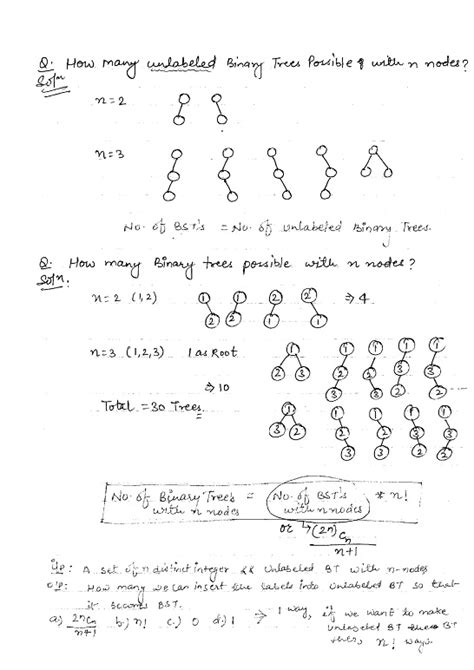 Q. How many unlabeled Binary Trees Possible with n nodes?
Soln
n=2
n=3
No. of BST's = No. of unlabeled Binary Trees.
Q. How many Binary trees possible with n nodes?
Soln.
n=2 (1,2) 1 2 1 2 2 1 2 1 ⇒ 4
n=3 (1,2,3) 1 as Root
⇒ 10
Total = 30 Trees.
No. of Binary Trees with n nodes = No. of BST's with n nodes * n!
or (2n)Cn / n+1
I/p: A set of n distinct integer && Unlabeled BT with n-nodes
O/P: How many we can insert the labels into Unlabeled BT so that
it becomes BST.
a) 2nCn / n+1 b) n! c) 0 d) 1 → 1 way, if we want to make
unlabeled BT
then, n! ways